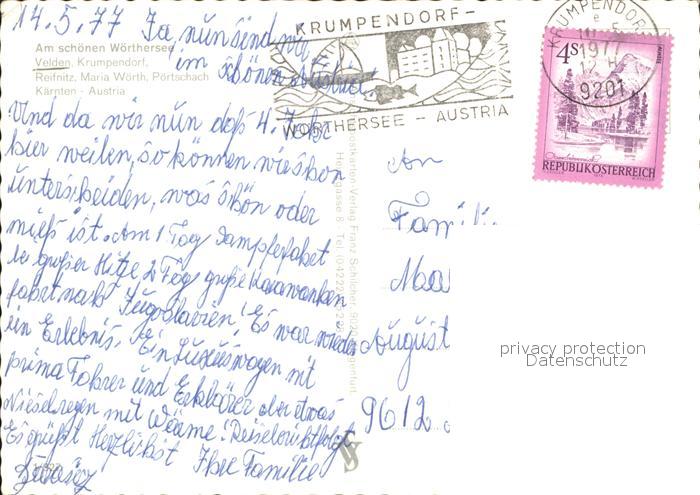 14.5.77 Ja, nun sind wir
im schönen
Am schönen Wörthersee
Velden, Krumpendorf,
Reifnitz, Maria Wörth, Pörtschach
Kärnten - Austria
und da wir nun das 4. Jahr
hier weilen, so können wir schon
unterscheiden, was schön oder
mieß ist. Am 1 Tag Dampferfahrt
bei großer Hitze 2 Tag große Karawanken
fahrt nach Jugoslavien! Es war wieder
ein Erlebnis. Ein Luxuswagen mit
prima Fahrer und Erklärer aber etwas
Nieselregen mit Wärme! Reisebericht folgt
Es grüßt Herzlichst Ihre Familie
KRUMPENDORF -
WÖRTHERSEE - AUSTRIA
KRUMPENDORF
1977
9201
4S
REPUBLIK ÖSTERREICH
An
Fam
August
9612
Postkarten-Verlag Franz Schilcher, 9020 Klagenfurt
privacy protection
Datenschutz